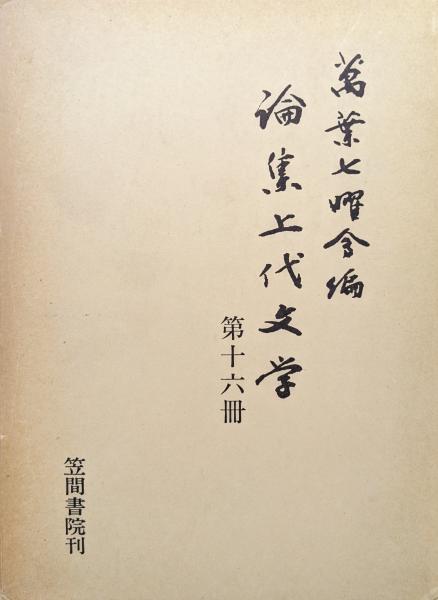 萬葉七曜会編
論集上代文学
第十六冊
笠間書院刊